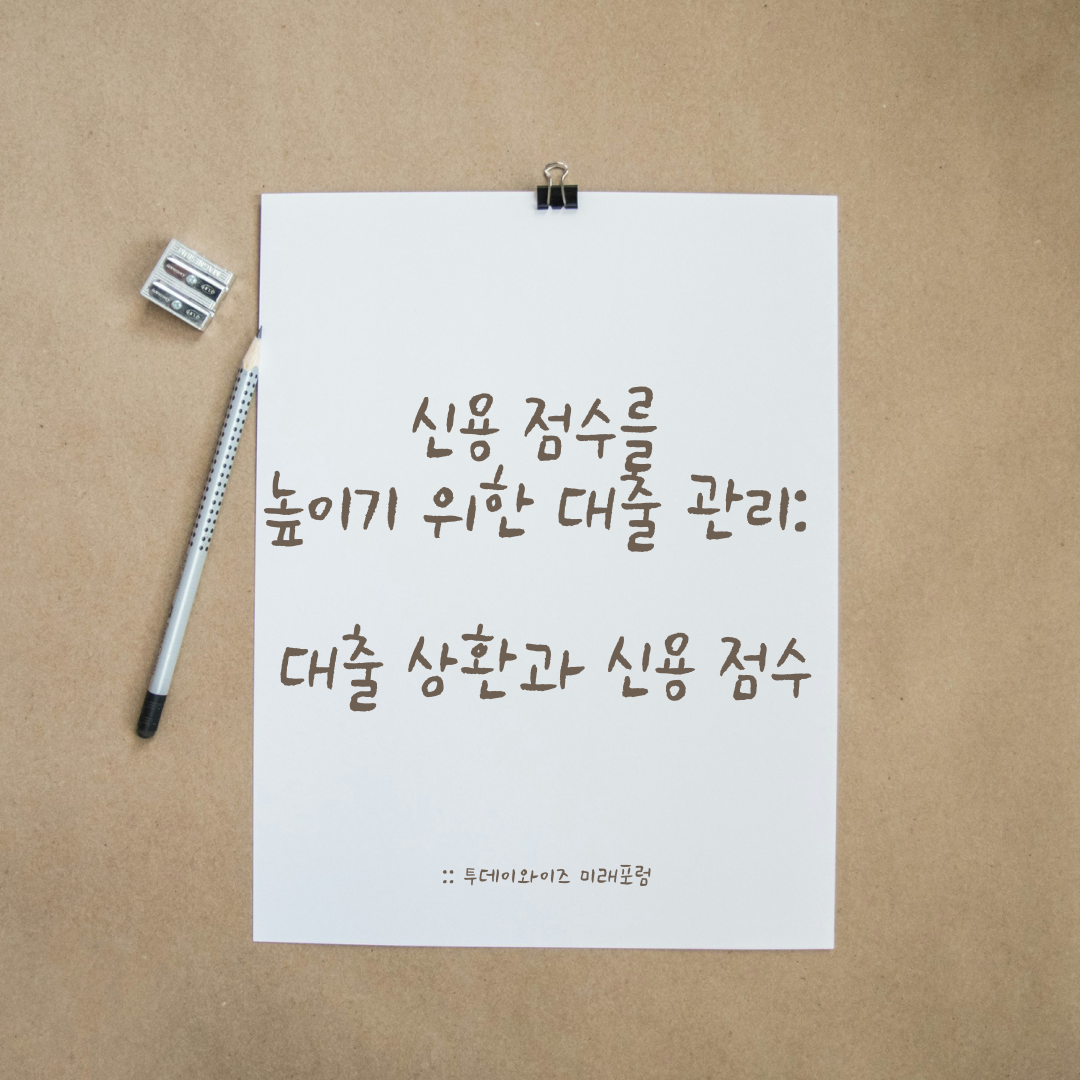 신용 점수를
높이기 위한 대출 관리:
대출 상환과 신용 점수
:: 투데이와이즈 미래포럼